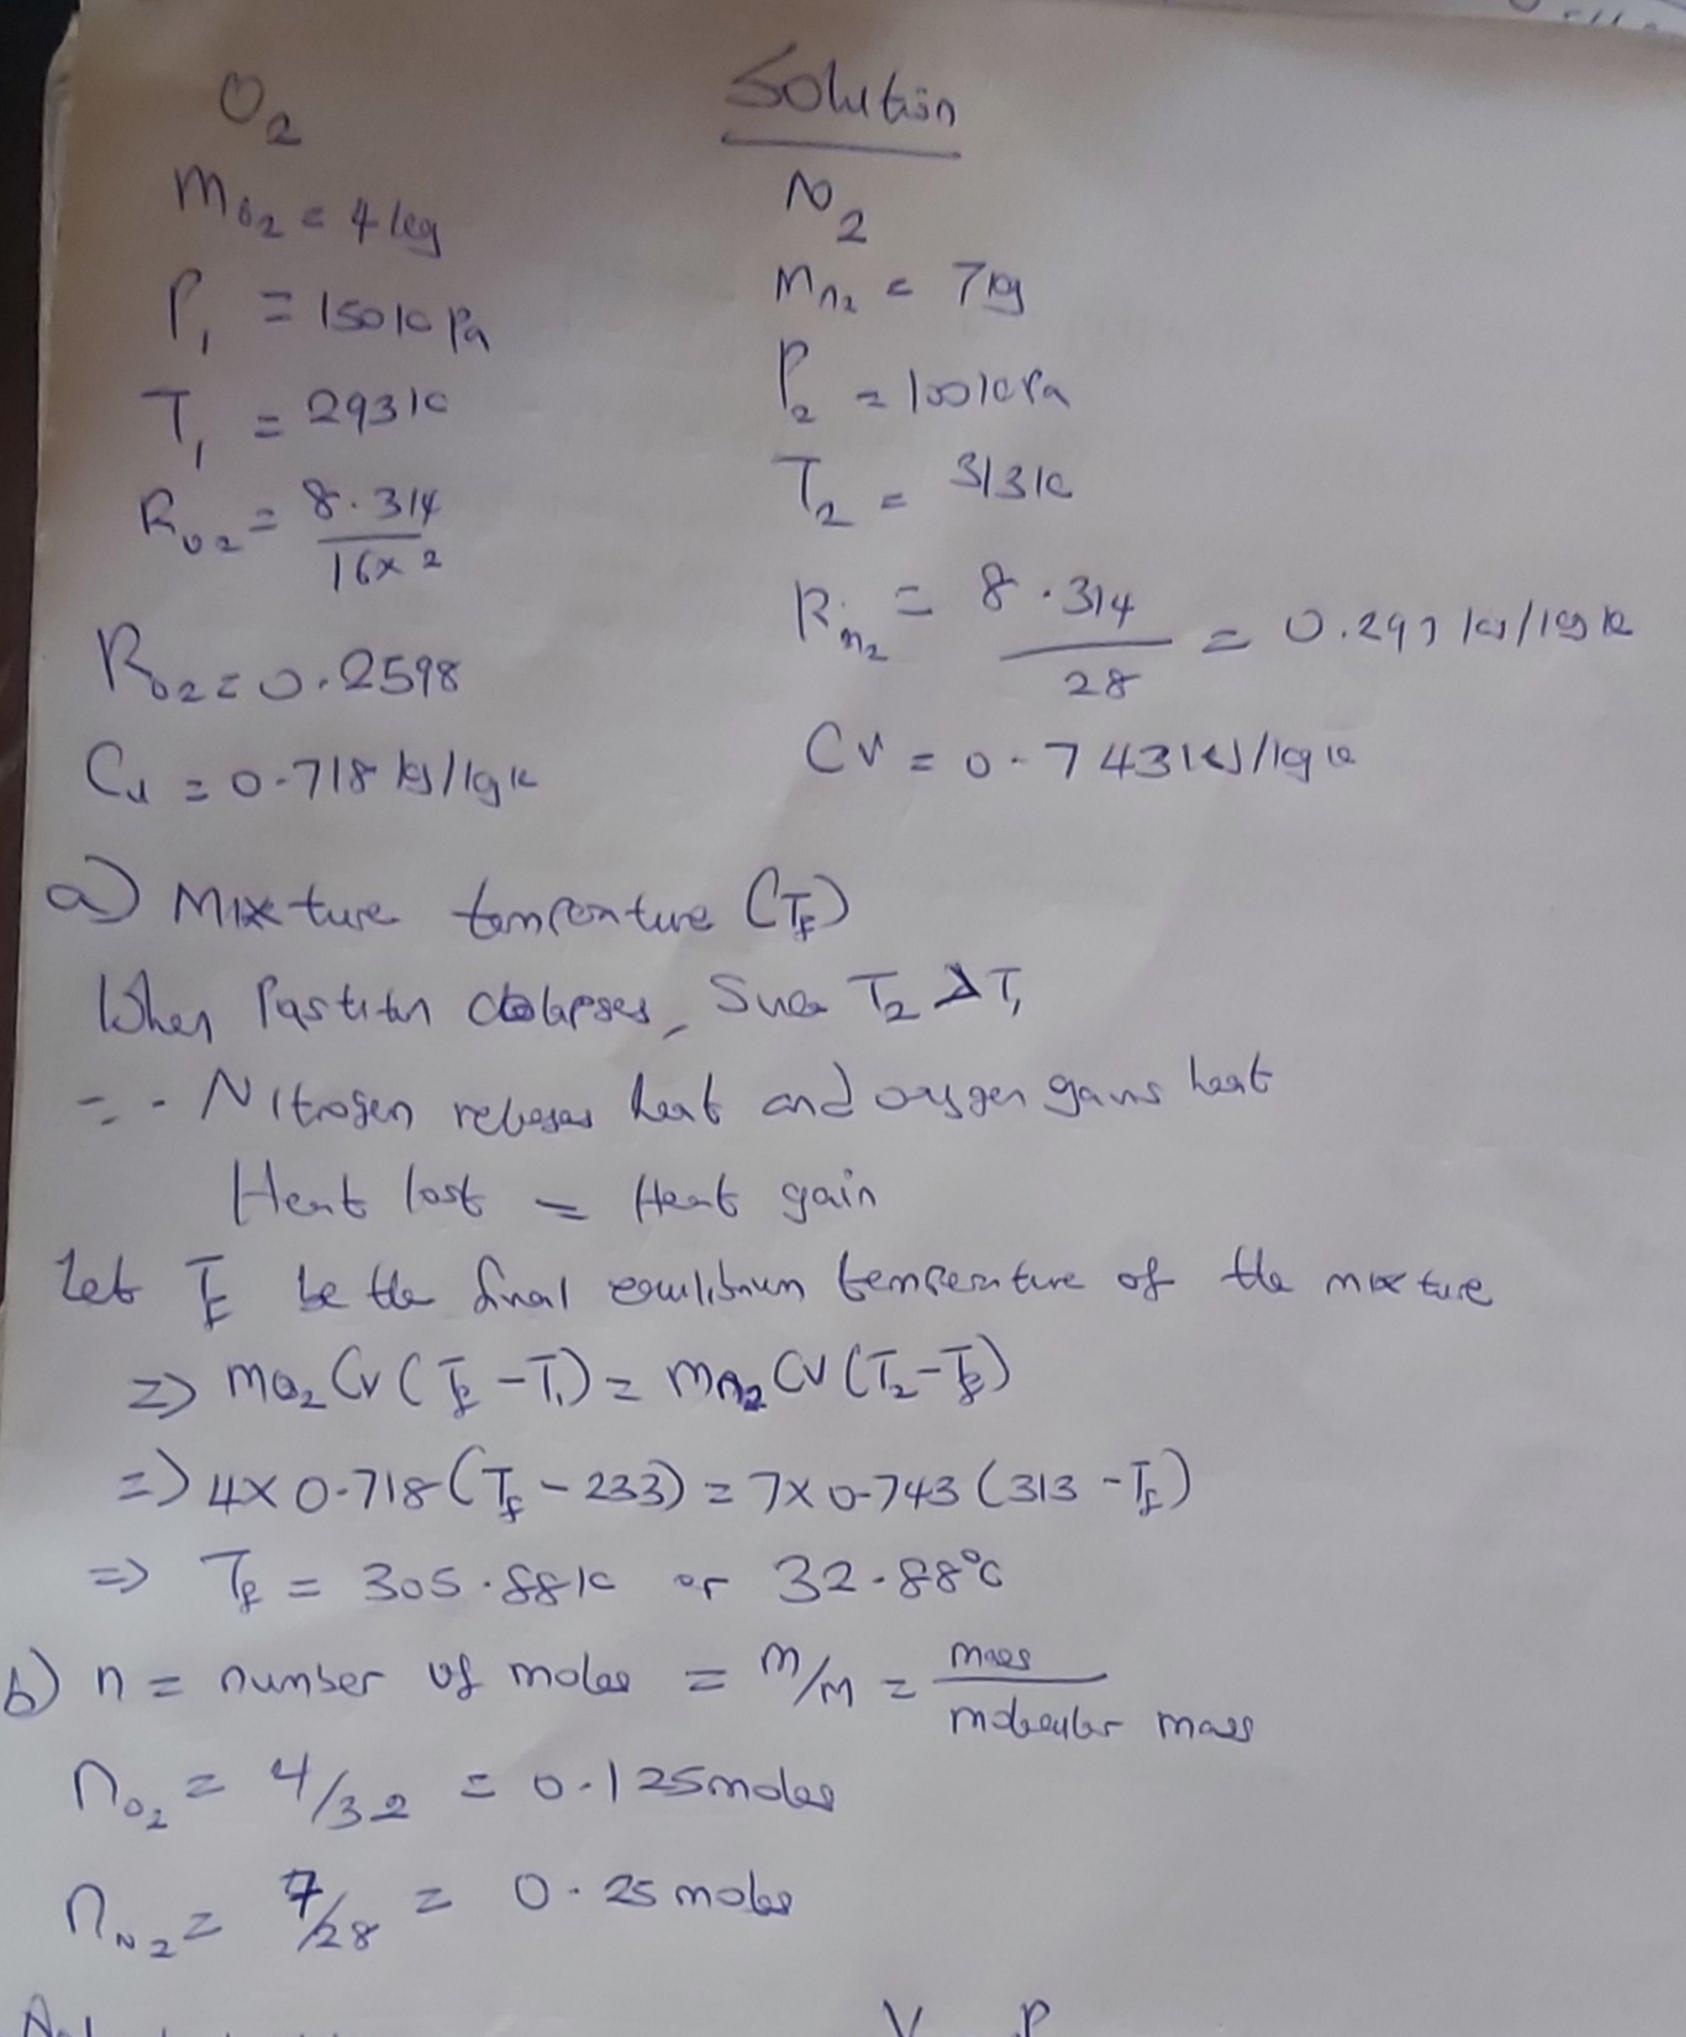 Solution
O2
mo2 = 4kg
P1 = 150kPa
T1 = 293K
Ro2 = 8.314 / 16x2
Ro2 = 0.2598
Cv = 0.718 kJ/kgK
N2
mn2 = 7kg
P2 = 100kPa
T2 = 313K
Rn2 = 8.314 / 28 = 0.297 kJ/kgK
CV = 0.743kJ/kgK
a) Mixture temperature (Tf)
When Partition collapses, Since T2 > T1
∴ Nitrogen releases heat and oxygen gains heat
Heat lost = Heat gain
Let Tf be the final equilibrium temperature of the mixture
=> mo2 Cv (Tf - T1) = mn2 CV (T2 - Tf)
=> 4 x 0.718 (Tf - 233) = 7 x 0.743 (313 - Tf)
=> Tf = 305.88K or 32.88°C
b) n = number of moles = m/M = mass / molecular mass
no2 = 4/32 = 0.125moles
nN2 = 7/28 = 0.25 moles
V P